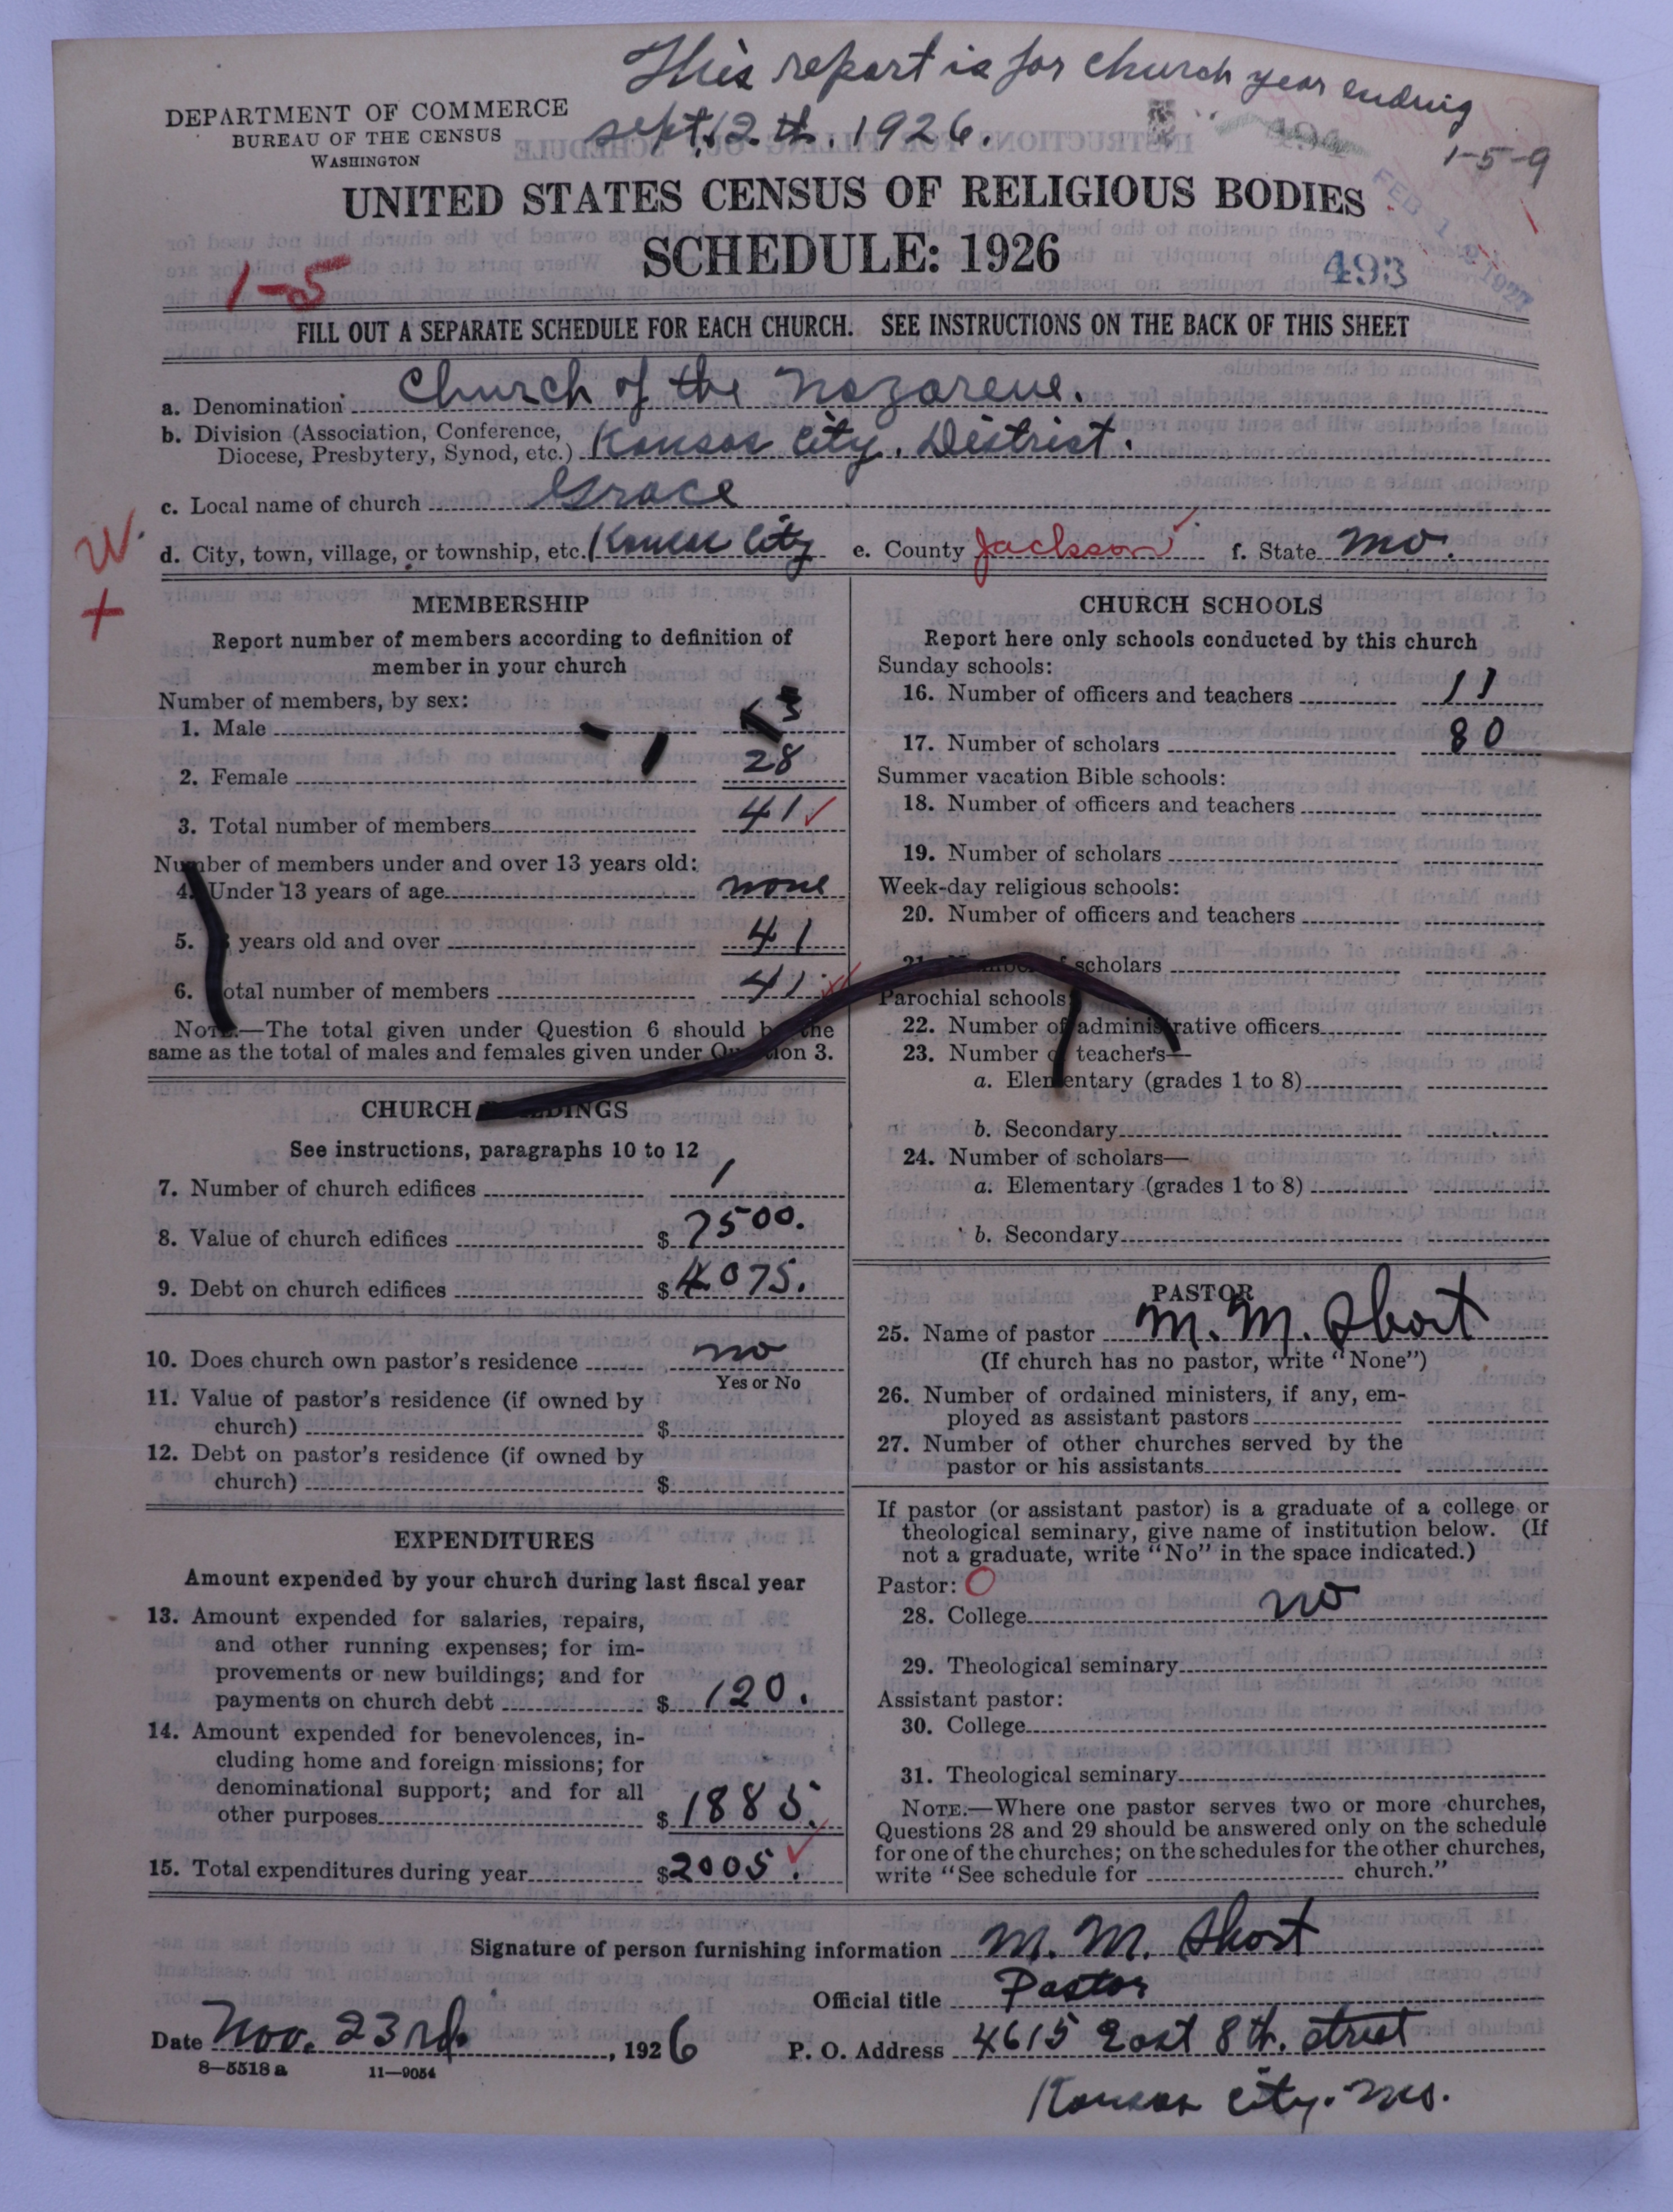 This report is for church year ending
Sept. 12th. 1926.
1-5-9
DEPARTMENT OF COMMERCE
BUREAU OF THE CENSUS
WASHINGTON
UNITED STATES CENSUS OF RELIGIOUS BODIES
SCHEDULE: 1926
FEB 1 1927
493
1-5
FILL OUT A SEPARATE SCHEDULE FOR EACH CHURCH. SEE INSTRUCTIONS ON THE BACK OF THIS SHEET
a. Denomination Church of the Nazarene.
b. Division (Association, Conference,
Diocese, Presbytery, Synod, etc.) Kansas City, District.
c. Local name of church Grace
d. City, town, village, or township, etc. Kansas City e. County Jackson f. State Mo.
W.
+
MEMBERSHIP
Report number of members according to definition of
member in your church
Number of members, by sex:
1. Male
2. Female 28
3. Total number of members 41
Number of members under and over 13 years old:
4. Under 13 years of age none
5. years old and over 41
6. otal number of members 41
NOTE.—The total given under Question 6 should be the
same as the total of males and females given under Question 3.
CHURCH BUILDINGS
See instructions, paragraphs 10 to 12
7. Number of church edifices 1
8. Value of church edifices $ 7500.
9. Debt on church edifices $ 4075.
10. Does church own pastor's residence no
Yes or No
11. Value of pastor's residence (if owned by
church) $
12. Debt on pastor's residence (if owned by
church) $
EXPENDITURES
Amount expended by your church during last fiscal year
13. Amount expended for salaries, repairs,
and other running expenses; for im-
provements or new buildings; and for
payments on church debt $ 120.
14. Amount expended for benevolences, in-
cluding home and foreign missions; for
denominational support; and for all
other purposes $ 1885.
15. Total expenditures during year $2005.
CHURCH SCHOOLS
Report here only schools conducted by this church
Sunday schools:
16. Number of officers and teachers 11
17. Number of scholars 80
Summer vacation Bible schools:
18. Number of officers and teachers
19. Number of scholars
Week-day religious schools:
20. Number of officers and teachers
21. Number of scholars
Parochial schools:
22. Number of administrative officers
23. Number of teachers—
a. Elementary (grades 1 to 8)
b. Secondary
24. Number of scholars—
a. Elementary (grades 1 to 8)
b. Secondary
PASTOR
25. Name of pastor M. M. Short
(If church has no pastor, write "None")
26. Number of ordained ministers, if any, em-
ployed as assistant pastors
27. Number of other churches served by the
pastor or his assistants
If pastor (or assistant pastor) is a graduate of a college or
theological seminary, give name of institution below. (If
not a graduate, write "No" in the space indicated.)
Pastor: O
28. College no
29. Theological seminary
Assistant pastor:
30. College
31. Theological seminary
NOTE.—Where one pastor serves two or more churches,
Questions 28 and 29 should be answered only on the schedule
for one of the churches; on the schedules for the other churches,
write "See schedule for church."
Signature of person furnishing information M. M. Short
Official title Pastor
Date Nov. 23rd. , 1926 P. O. Address 4615 East 8th. Street
Kansas City. Mo.
8-5518 a 11-9054